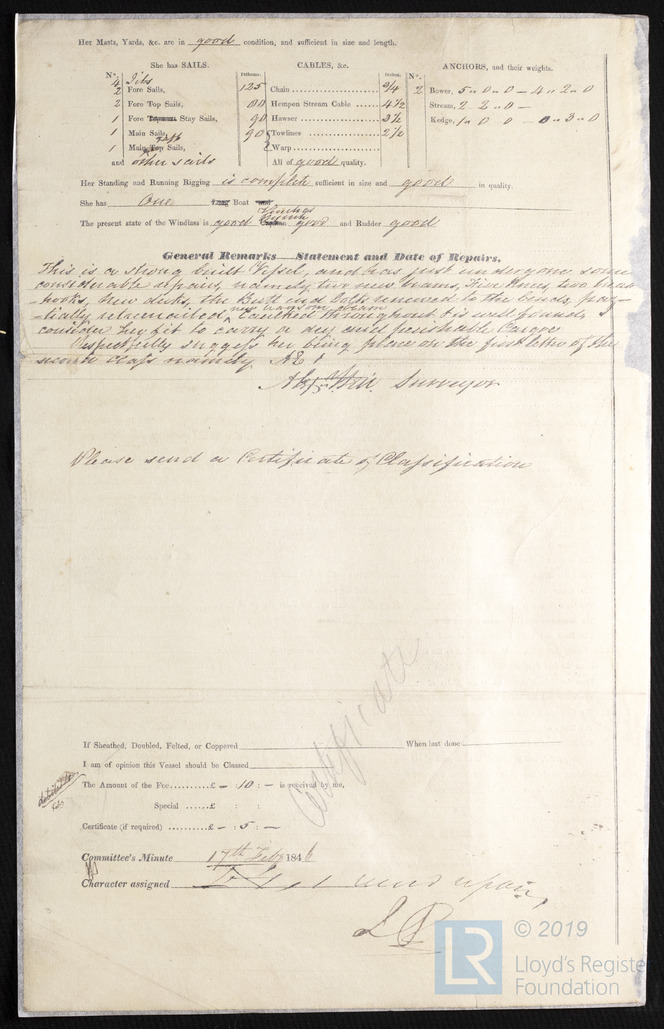 Her Masts, Yards, &c. are in good condition, and sufficient in size and length.
She has SAILS.
CABLES, &c.
ANCHORS, and their weights.
N°.
Fathoms.
Inches.
N°.
4 Jibs
2 Fore Sails,
125
Chain 3/4
2 Bower, 5 " 0 " 0 – 4 " 2 " 0
2 Fore Top Sails,
Hempen Stream Cable 4 1/2
Stream, 2 " 2 " 0 –
1 Fore Stay Sails,
90
Hawser 3 1/2
Kedge, 1 " 0 " 0 – 0 " 3 " 0
1 Main Sails,
90
Towlines 2 1/2
1 Main Top Sails,
Warp
and other sails
All of good quality.
Her Standing and Running Rigging is complete sufficient in size and good in quality.
She has One Long Boat and
The present state of the Windlass is good good and Rudder good
General Remarks—Statement and Date of Repairs.
This is a strong built Vessel, and has just undergone some
considerable repairs, namely, two new beams, Five Knees, two
hooks, new decks, the Butt end renewed to the bends,
Caulked throughout & is well found, I
consider her fit to carry a dry and perishable Cargoe
Respectfully suggest her being place on the first letter of the
second class namely Æ 1
Surveyor
Please send a Certificate of Classification
Certificate
If Sheathed, Doubled, Felted, or Coppered When last done
I am of opinion this Vessel should be Classed
The Amount of the Fee £ – 10 : – is received by me,
Special £ : :
Certificate (if required) £ – : 5 : –
Committee's Minute 17th Feby 1846
Character assigned
LR © 2019
Lloyd's Registe
Foundation